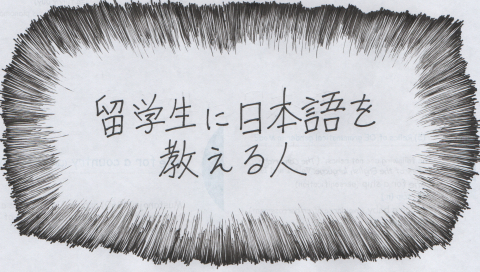 留学生に日本語を
教える人